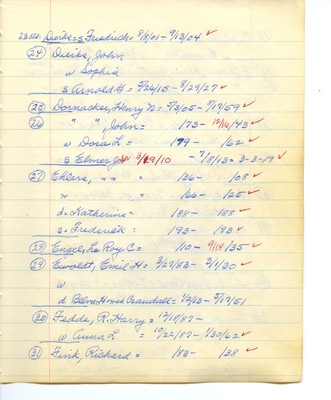 23 Std. Dierks = s Friedrich = 9/8/01 - 9/13/04 ✓
24 Dierks, John
w Sophia
s Arnold H = 5/26/15 - 8/29/27 ✓
25 Dornacker, Henry N = 5/2/05 - 7/17/59 ✓
26 " ", John = 1/73 - 12/16/43 ✓
w Dora L = 1/79 - 1/62 ✓
s Elmer
27 Ehlers, " " " 1/36 - 1/08 ✓
w " 1/66 - 1/25 ✓
d = Katherine - 1/88 - 1/88 ✓
s = Frederick = 1/93 - 1/93 ✓
28 Engel, Le Roy C = 1/10 - 9/18/35 ✓
29 Ewoldt, Emil H = 3/27/83 - 3/1/30 ✓
w
d Crandall = 1/2/13 - 5/17/51
30 Fedde, R. Harry = 12/11/87 -
w Anna L = 10/22/87 - 1/30/62 ✓
31 Fink, Richard = 1/83 - 1/38 ✓